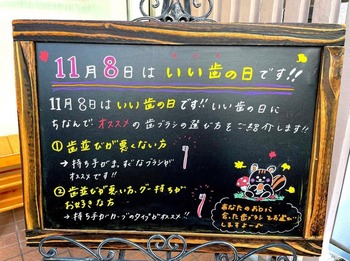 11月8日は いい歯の日です!!
11月8日は いい歯の日です!! いい歯の日に
ちなんで オススメの歯ブラシの選び方をご紹介します!!
① 歯並びが悪くない方
→ 持ち手がまっすぐなブラシが
オススメです!!
② 歯並びが悪い方、グー持ちが
お好きな方
→ 持ち手がカーブのタイプがオススメ!!
あなたのお口に
合った歯ブラシ
しますよ〜